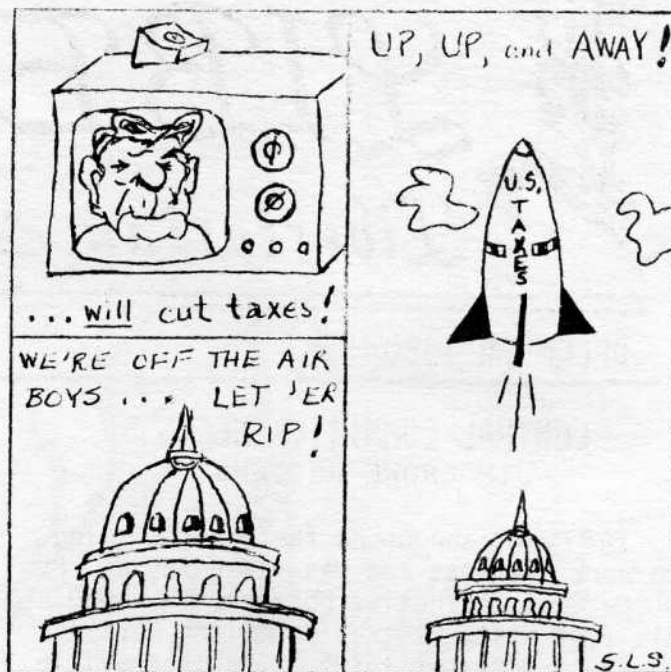 ... will cut taxes!
WE'RE OFF THE AIR
BOYS ... LET 'ER
RIP!
UP, UP, and AWAY!
U.S.
TAXES
S.L.S